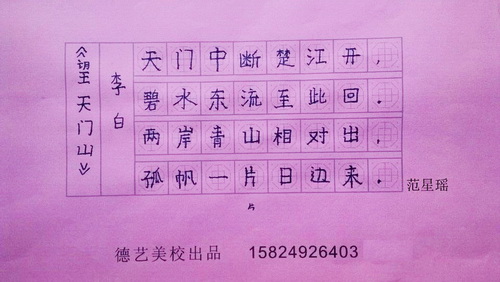 《望天门山》
李白
天门中断楚江开，
碧水东流至此回．
两岸青山相对出，
孤帆一片日边来．
范星瑶
片
德艺美校出品 15824926403